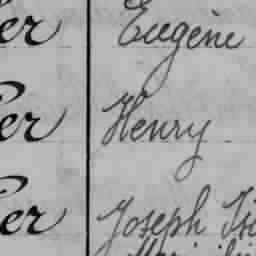 er Eugène
er Henry
er Joseph